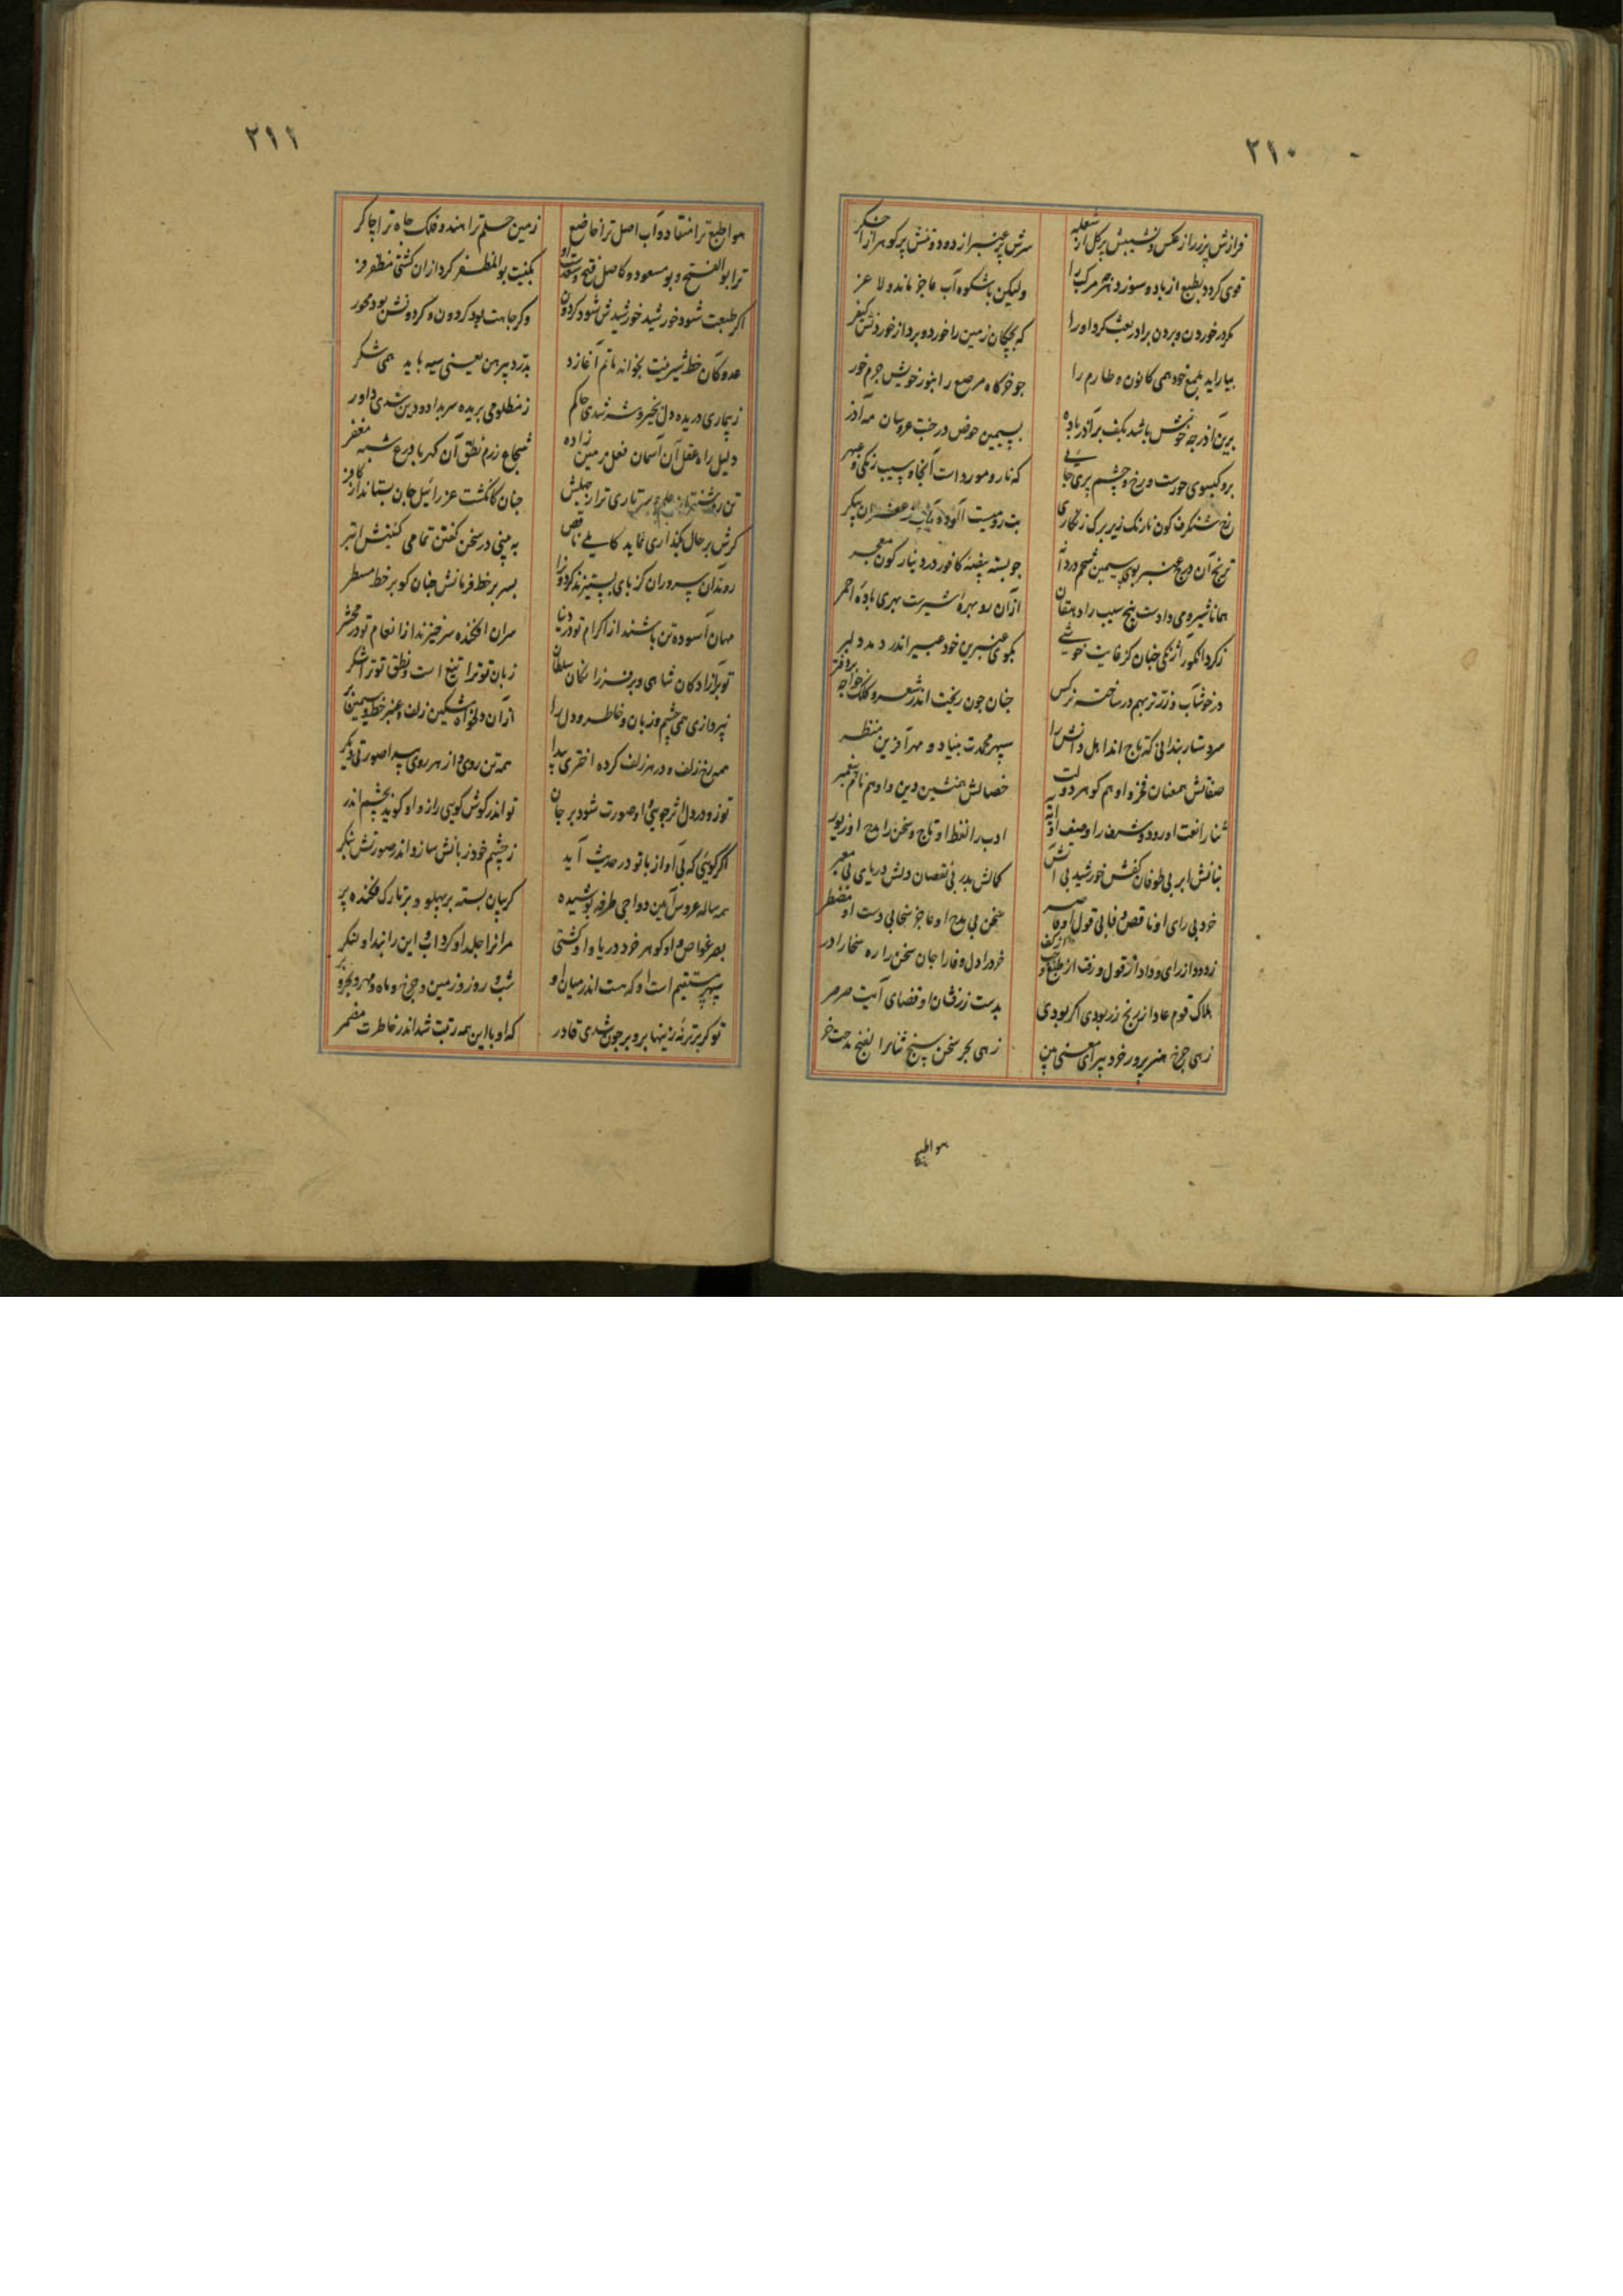 ۲۱۰
فرازش پرزر از عکس و نشیبش پرگل از شعله سرش پرعنبر از دود و تنش پر گوهر از اخگر
قوی گردد بطبع از باد و سوزد هر مرکب را ولیکن باشکوه آب عاجز ماند و لاغر
مگر در خوردن و بردن برادر بعث کرد او را که بچگان زمین را خورد و برد از خوردنش کیفر
بیاراید بلمع خود همی کانون و طارم را چو خرگاه مرصع را بنور خویش جرم خور
برین آذر چه خوش باشد بکف بر آذر باده بسیمین حوض در جنت عروسان مه آذر
برو گیسوی حورست و رخ و چشم پری جایی که نار و مورد است آنجا و سیب زنگی و عبهر
رخ شنگرف گون نارنگ زیر برگ زنگاری بت رومیست آلوده بآب زعفران پیکر
ترنج آن درج عنبربوی سیمین شحم درو آن چو بسته بیضه کافور در دینارگون معجر
همانا شیر و می دادست بیخ سیب را دهقان ازان رو بهره شیرست و بهری باده احمر
ز گرد انگور از زنگی چنان کز غایت خوشی بگوی عنبرین خود عبیر اندر دمد دلبر
در خوشاب و زر تر بهم در ساخت نرگس چنان چون ریخت اندر شعر و کلک خواجه بر دفتر
سر دستاربندانی که تاج اند اهل دانش را سپهر محمدت بنیاد و مهر آفرین منظر
صفاتش همعنان فخر و او هم گوهر دولت خصالش همنشین دین و او هم نام پیغمبر
ثنا را نعت او رود و شرف را وصف او آیه ادب را لفظ او تاج و سخن را مدح او زیور
بنانش ابر بی طوفان کفش خورشید بی آتش کمالش بدر بی نقصان دلش دریای بی معبر
خرد بی رای او ناقص وفا بی قول او قاصر سخن بی مدح او عاجز سخا بی دست او مضطر
زدود از رای و داد از قول و رفت از طبع و از کف خرد را دل وفا را جان سخن را ره سخا را در
هلاک قوم عاد از برنج زر بودی اگر بودی بدست زرفشان او قضای آیت صرصر
زهی چرخ هنرپرور خرد پیرای معنی بین زهی بحر سخن سنج ثنا را الفنج مدحت خر
هوا طبع
۲۱۱
هوا طبع ترا منقاد و آب اصل ترا خاضع زمین حلم ترا هندو فلک جاه ترا چاکر
ترا بوالفتح و بومسعود و کاصل فتح و سعدست او بکنیت بوالمظفر کرد ازان گشتی مظفر فر
اگر طبعت شود خورشید خورشیدش شود گردون وگر جاهت بود گردون و گردونش بود محور
عدو کآن خط شیرینت بخواند ماتم آغازد بدرد پیرهن یعنی سیه باید همی شکر
ز بیماری دریده دل بخیر و شر شدی حاکم ز مظلومی بریده سر بداد و دین شدی داور
دلیل راه عقل آن آسمان فعل زمین زاده شجاع رزم نطق آن کهربا درع شبه مغفر
چنان کانگشت عزرائیل جان بستاند از کافر
گرش بر حال بگذاری نماید کاملی ناقص به بینی در سخن گفتن تمامی گفتنش ابتر
روند آن سروران کز پای پستیزند گردون را بسر بر خط فرمانش چنان کو بر خط مسطر
مهان آسوده تن باشند از اکرام تو در دنیا سران افکنده سر خیزند از انعام تو در محشر
تو بر آزادگان شاهی و بر فرزانگان سلطان زبان تو ترا تیغ است و نطق تو ترا لشکر
نپردازی همی چشم و زبان و خاطر و دل را ازان دلخواه مشکین زلف و عنبر خط و سیمین بر
همه رخ زلف و در هر زلف کرده اختری پیدا همه تن روی و از هر روی پیدا صورتی دیگر
تو زو در دل اثر جویی و او صورت شود بر جان تو اندر گوش گویی راز و او گوید بچشم اندر
اگر گویی که بی آواز با تو در حدیث آید ز چشم خود زبانش ساز و اندر صورتش بنگر
همه ساله عروس آیین دواجی طرفه پوشیده گریبان بسته بر پهلو و بر تارک فکنده پر
بصر غواص و او گوهر خرد دریا و او کشتی مر آن را جلد او گرداب و این را بند او لنگر
سپهر مستقیم است او که هست اندر میان او شب و روز و زمین و چرخ و ماه و مهر و بحر و بر
تو گر برتر نه زینها برو بر چون شدی قادر که او با این همه رتبت شد اندر خاطرت مضمر